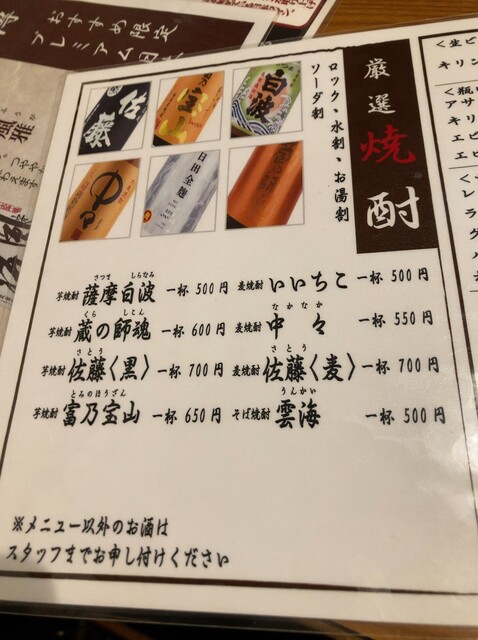 おすすめ限定
プレミアム
厳選焼酎
ロック、水割、お湯割
ソーダ割
佐藤
宝山
白波
中々
日田全麹
さつま しらなみ
芋焼酎 薩摩白波 一杯 500円
麦焼酎 いいちこ 一杯 500円
くら しこん
芋焼酎 蔵の師魂 一杯 600円
なかなか
麦焼酎 中々 一杯 550円
さとう
芋焼酎 佐藤〈黒〉 一杯 700円
さとう
麦焼酎 佐藤〈麦〉 一杯 700円
とみのほうざん
芋焼酎 富乃宝山 一杯 650円
うんかい
そば焼酎 雲海 一杯 500円
※メニュー以外のお酒は
スタッフまでお申し付けください
<生ビ
キリン